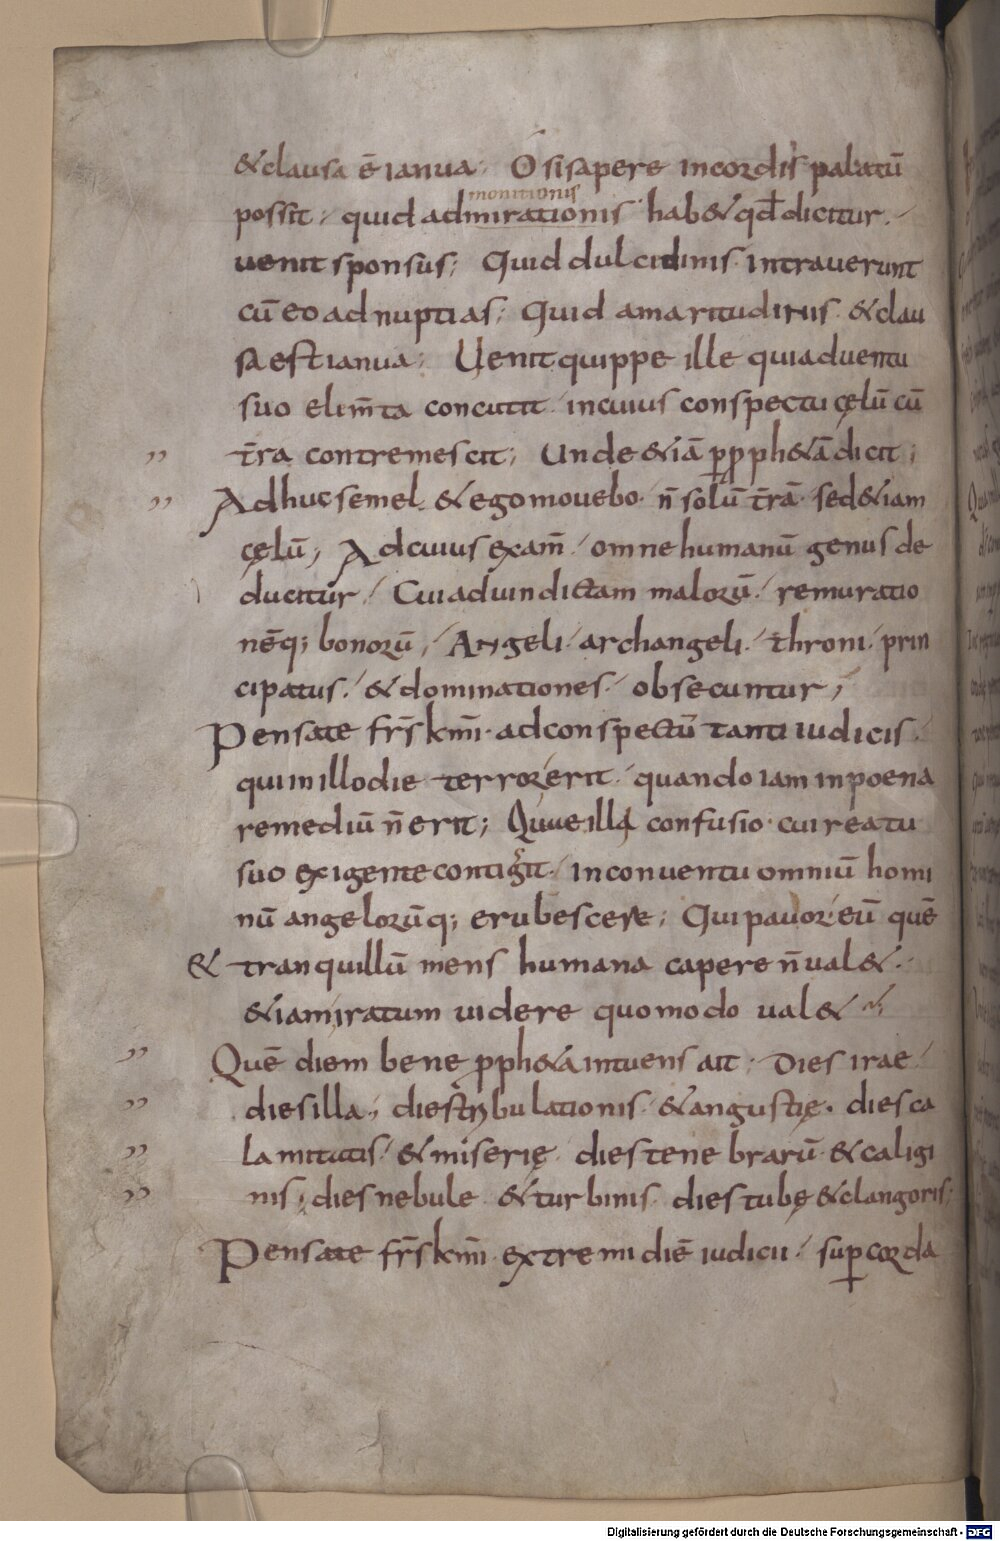 & clausa ē ianua; O si sapere in cordis palatū
monitionis
possit; quid admirationis hab& qd̄ dicitur.
uenit sponsus; Quid dulcidinis intrauerunt
cū eo ad nuptias; Quid amaritudinis & clau
sa est ianua; Uenit quippe ille qui aduentu
suo elim̄ta concutit. in cuius conspectu cęlū cū
t̄ra contremescit; Unde & iā p̱pph&ā dicit;
Adhuc semel & ego mouebo. n̄ solū t̄rā. sed & iam
cęlū; Ad cuius exam̄. omne humanū genus de
ducitur. Cui ad uindictam malorū. remuratio
nēq; bonorū; Angeli. archangeli. throni. prin
cipatus. & dominationes. obsecuntur;
Pensate fr̄s km̄i. ad conspectū tanti iudicis.
qui in illo die terror erit. quando iam in poena
remediū n̄ erit; Quae illa confusio. cui reatu
suo exigente contigit. in conuentu omniū homi
nū angelorūq; erubescere; Qui pauor eū quē
& tranquillū mens humana capere n̄ ual&.
& iam iratum uidere quomodo ual&
Quē diem bene pph&a intuens ait. Dies irae
dies illa; dies tribulationis. & angustię. dies ca
lamitatis. & miserię. dies tenebrarū. & caligi
nis; dies nebule & turbinis. dies tubę & clangoris;
Pensate fr̄s km̄i. extremi diē iudicii. sup corda
Digitalisierung gefördert durch die Deutsche Forschungsgemeinschaft - DFG